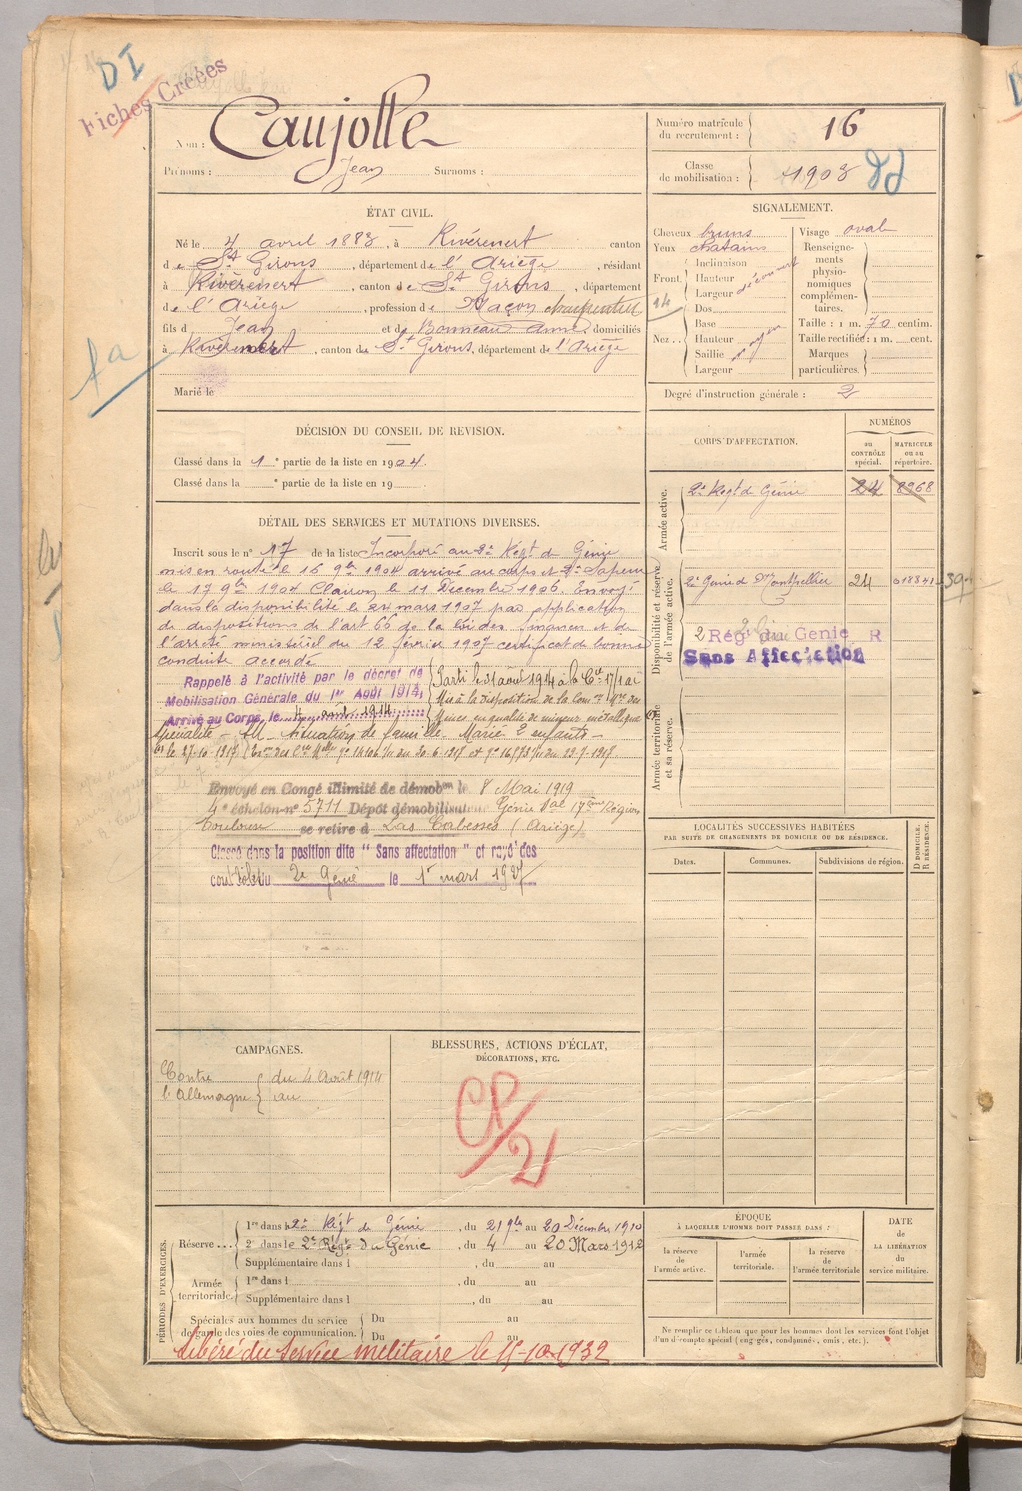 DI
Fiches Créées
Nom : Caujolle
Prénoms : Jean Surnoms :
Numéro matricule du recrutement : 16
Classe de mobilisation : 1903
ÉTAT CIVIL.
Né le 4 avril 1883, à Rivèrenert canton
de St Girons, département de l'Ariège, résidant
à Rivèrenert, canton de St Girons, département
de l'Ariège, profession de Maçon charpentier
fils d Jean et de Bonneau Anne, domiciliés
à Rivèrenert, canton de St Girons, département de l'Ariège
Marié le
SIGNALEMENT.
Cheveux bruns
Yeux chatains
Front.
Inclinaison
Hauteur découvert
Largeur
Nez..
Dos
Base
Hauteur moyen
Saillie
Largeur
Visage oval
Renseignements physionomiques complémentaires.
Taille : 1 m. 70 centim.
Taille rectifiée : 1 m. cent.
Marques particulières.
Degré d'instruction générale : 2
DÉCISION DU CONSEIL DE REVISION.
Classé dans la 1e partie de la liste en 1904.
Classé dans la e partie de la liste en 19
CORPS D'AFFECTATION.
NUMÉROS
au CONTRÔLE spécial.
MATRICULE ou au répertoire.
Armée active.
2e Regt de Génie 24 8968
Disponibilité et réserve de l'armée active.
2e Génie de Montpellier 24
2 Rég du Genie R
Sans Affectation
Armée territoriale et sa réserve.
DÉTAIL DES SERVICES ET MUTATIONS DIVERSES.
Inscrit sous le n° 17 de la liste Incorporé au 2e Régt de Génie
mis en route le 16 9bre 1904 arrivé au corps et 2e Sapeur
le 17 9bre 1904 Clairon le 11 Décembre 1906. Envoyé
dans la disponibilité le 24 mars 1907 par application
de dispositions de l'art 66 de la loi des finances et de
l'arrêté ministériel du 12 février 1907 certificat de bonne
conduite accordé
Rappelé à l'activité par le décret de
Mobilisation Générale du 1er Août 1914,
Arrivé au Corps, le 4 août 1914
Parti le 31 août 1914 à la Cie 17/1
Mis à la disposition de la
Mines en qualité de mineur métallique
Spécialité - situation de famille. Marié 2 enfants -
le 27-10-1917
Envoyé en Congé illimité de démobon le 8 Mai 1919
4e échelon n° 5711 Dépôt démobilisateur Génie 17ème Région
Toulouse se retire à Las Cabesses (Ariège)
Classé dans la position dite " Sans affectation " et rayé des
contrôles du 2e Génie le 1er mars 1927
LOCALITÉS SUCCESSIVES HABITÉES
PAR SUITE DE CHANGEMENTS DE DOMICILE OU DE RÉSIDENCE.
Dates. Communes. Subdivisions de région.
D DOMICILE. R RÉSIDENCE.
CAMPAGNES.
Contre l'Allemagne du 4 Août 1914
au
BLESSURES, ACTIONS D'ÉCLAT,
DÉCORATIONS, ETC.
CP/21
PÉRIODES D'EXERCICES.
Réserve...
1re dans le 2e Régt de Génie, du 21 9bre au 20 Décembre 1910
2e dans le 2e Régt du Génie, du 4 au 20 Mars 1912
Supplémentaire dans l , du au
Armée territoriale.
1re dans l , du au
Supplémentaire dans l , du au
Spéciales aux hommes du service de garde des voies de communication.
Du au
Du au
Libéré du Service militaire le 15-10-1932
ÉPOQUE
À LAQUELLE L'HOMME DOIT PASSER DANS :
la réserve de l'armée active.
l'armée territoriale.
la réserve de l'armée territoriale
DATE de LA LIBÉRATION du service militaire.
Ne remplir ce tableau que pour les hommes dont les services font l'objet
d'un décompte spécial (engagés, condamnés, omis, etc.).